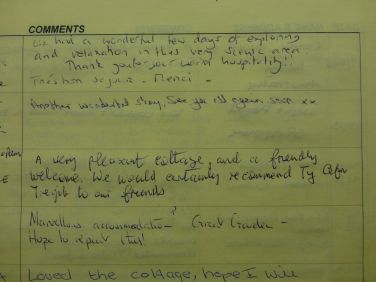 COMMENTS
We had a wonderful few days of exploring
and relaxation in this very scenic area.
Thank you for your warm hospitality!!
Très bon séjour. Merci -
Another wonderful stay, See you all again soon xx
A very pleasant cottage, and a friendly
welcome. We would certainly recommend Ty Cefn
Tregib to our friends
Marvellous accommodation - Great Garden -
Hope to repeat this!
Loved the cottage, hope I will